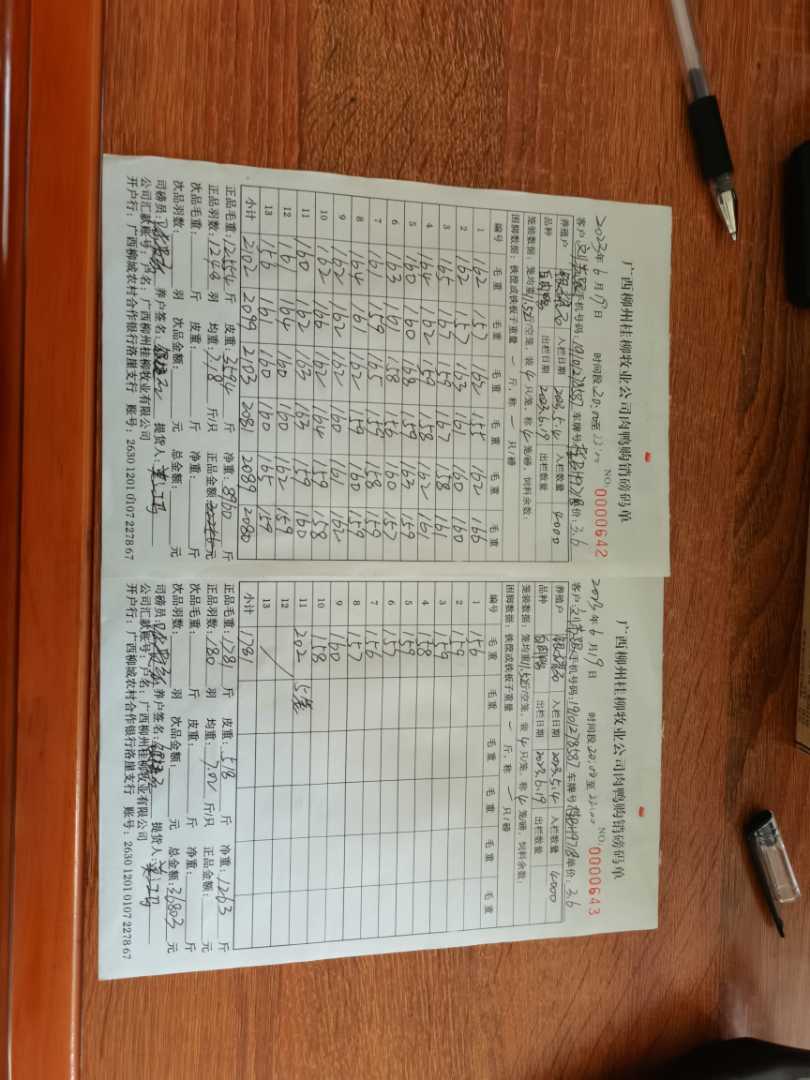 广西柳州桂柳牧业公司肉鸭购销磅码单
NO: 0000642
2023年6月19日 时间段20:00至22:00
手机号码:19101278587 单价:3.6
养殖户 入栏日期 2023.5.14 入栏数量 4000
品种 出栏日期 2023.6.19 出栏数量
笼装数据:笼均重11.5斤/空笼,装4只/笼,称4笼/磅,饲料余数:
编号 毛重 毛重 毛重 毛重 毛重 毛重
1 162 157 162 155 162 166
2 162 157 163 161 160 160
3 165 167 159 167 158 161
4 164 162 159 158 162 161
5 160 160 168 159 163 159
6 163 161 158 156 160 157
7 161 159 165 159 158 159
8 164 161 162 159 160 159
9 162 162 162 160 161 162
10 162 166 162 164 159 158
11 160 162 163 163 159 160
12 161 164 160 160 162 159
13 156 161 160 160 165 159
小计 2102 2099 2103 2081 2089 2080
正品毛重:12554斤 皮重:3594斤 净重:8960斤
正品羽数:1248羽 均重:7.18斤/只 正品金额: 元
次品毛重: 斤 皮重: 斤 净重: 斤
次品羽数: 羽 次品金额: 元 总金额: 元
司磅员: 养户签名: 提货人:
公司汇款账号:户名:广西柳州桂柳牧业有限公司
开户行:广西柳城农村合作银行洛崖支行 账号:2630 1201 0107 2278 67
广西柳州桂柳牧业公司肉鸭购销磅码单
NO: 0000643
2023年6月19日 时间段20:00至22:00
手机号码:19101278587 单价:3.6
养殖户 入栏日期 2023.5.14 入栏数量 4000
品种 出栏日期 2023.6.19 出栏数量
笼装数据:笼均重11.5斤/空笼,装4只/笼,称4笼/磅,饲料余数:
编号 毛重 毛重 毛重 毛重 毛重 毛重
1 156
2 159
3 159
4 158
5 159
6 157
7 156
8 157
9 160
10 158
11 202 5笼
12
13
小计 1781
正品毛重:1781斤 皮重:518斤 净重:1263斤
正品羽数:180羽 均重:7.02斤/只 正品金额: 元
次品毛重: 斤 皮重: 斤 净重: 斤
次品羽数: 羽 次品金额: 元 总金额:36803元
司磅员: 养户签名: 提货人:
公司汇款账号:户名:广西柳州桂柳牧业有限公司
开户行:广西柳城农村合作银行洛崖支行 账号:2630 1201 0107 2278 67